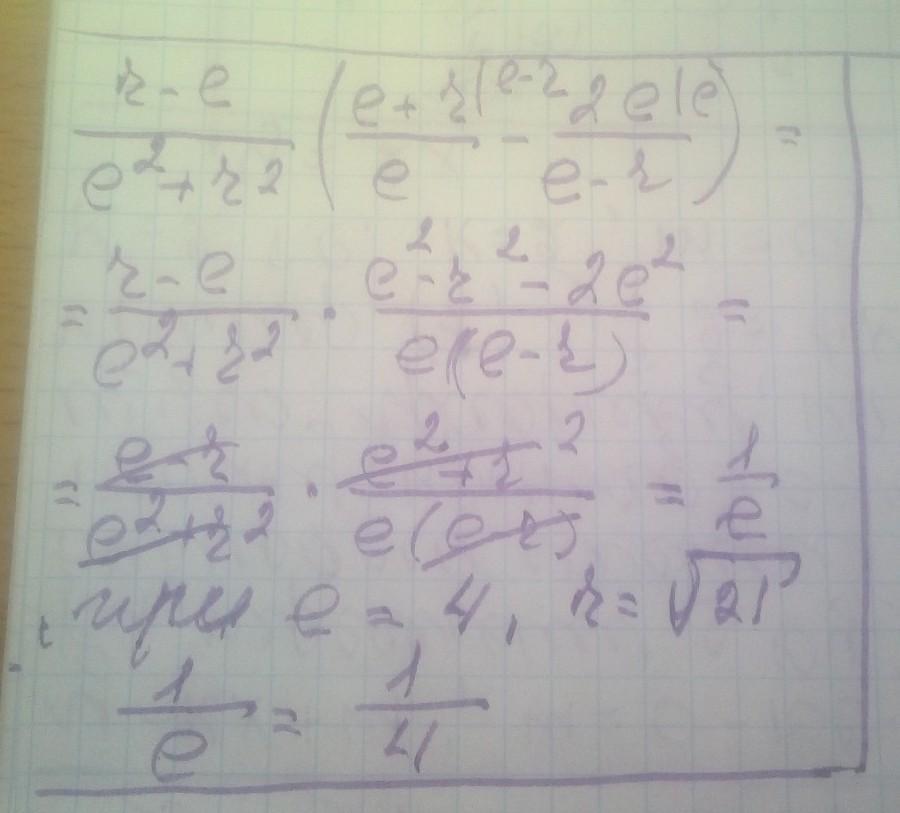 \frac{r-e}{e^2+r^2} \left( \frac{e+r|e-r}{e} - \frac{2e|e}{e-r} \right) =
= \frac{r-e}{e^2+r^2} \cdot \frac{e^2-r^2-2e^2}{e(e-r)} =
= \frac{e-r}{e^2+r^2} \cdot \frac{e^2+r^2}{e(e-r)} = \frac{1}{e}
при e = 4, r = \sqrt{21}
\frac{1}{e} = \frac{1}{4}